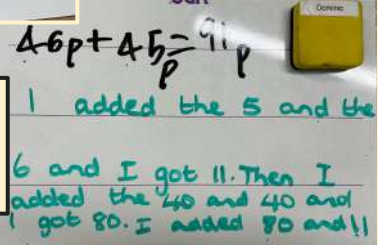 Dominic
46p + 45p = 91p
I added the 5 and the
6 and I got 11. Then I
added the 40 and 40 and
I got 80. I added 80 and 11